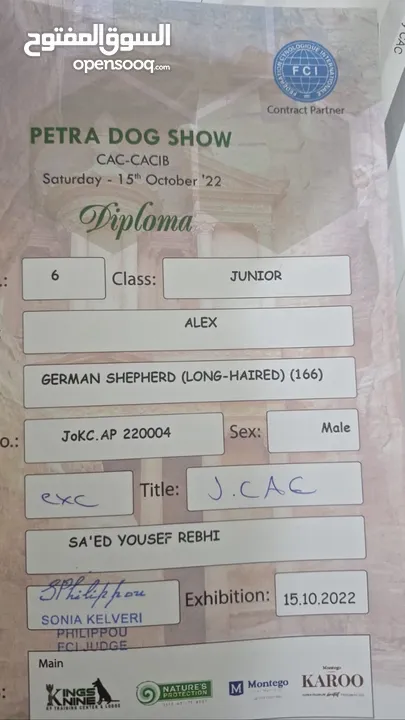 السوق المفتوح
opensooq.com
FEDERATION CYNOLOGIQUE INTERNATIONALE
FCI
Contract Partner
PETRA DOG SHOW
CAC-CACIB
Saturday - 15th October '22
Diploma
6 Class: JUNIOR
ALEX
GERMAN SHEPHERD (LONG-HAIRED) (166)
o.: JoKC.AP 220004 Sex: Male
exc Title: J.CAC
SA'ED YOUSEF REBHI
SPhilippou
SONIA KELVERI
PHILIPPOU
FCI JUDGE
Exhibition: 15.10.2022
Main
KINGS NINE
NATURE'S PROTECTION
Montego
Montego
KAROO
CAC